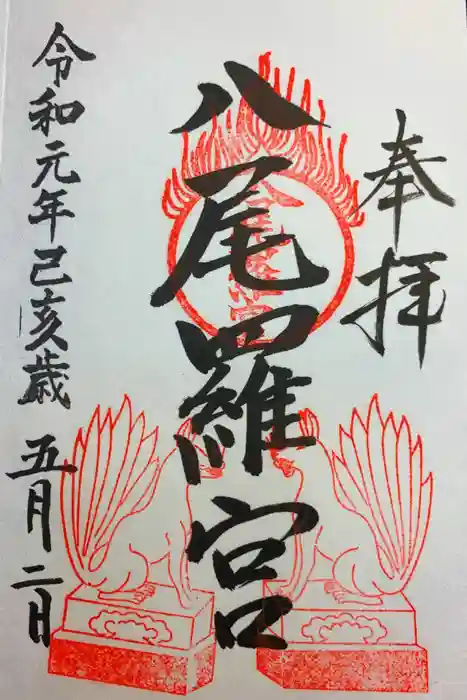 奉拝
八尾羅宮
令和元年己亥歳 五月二日